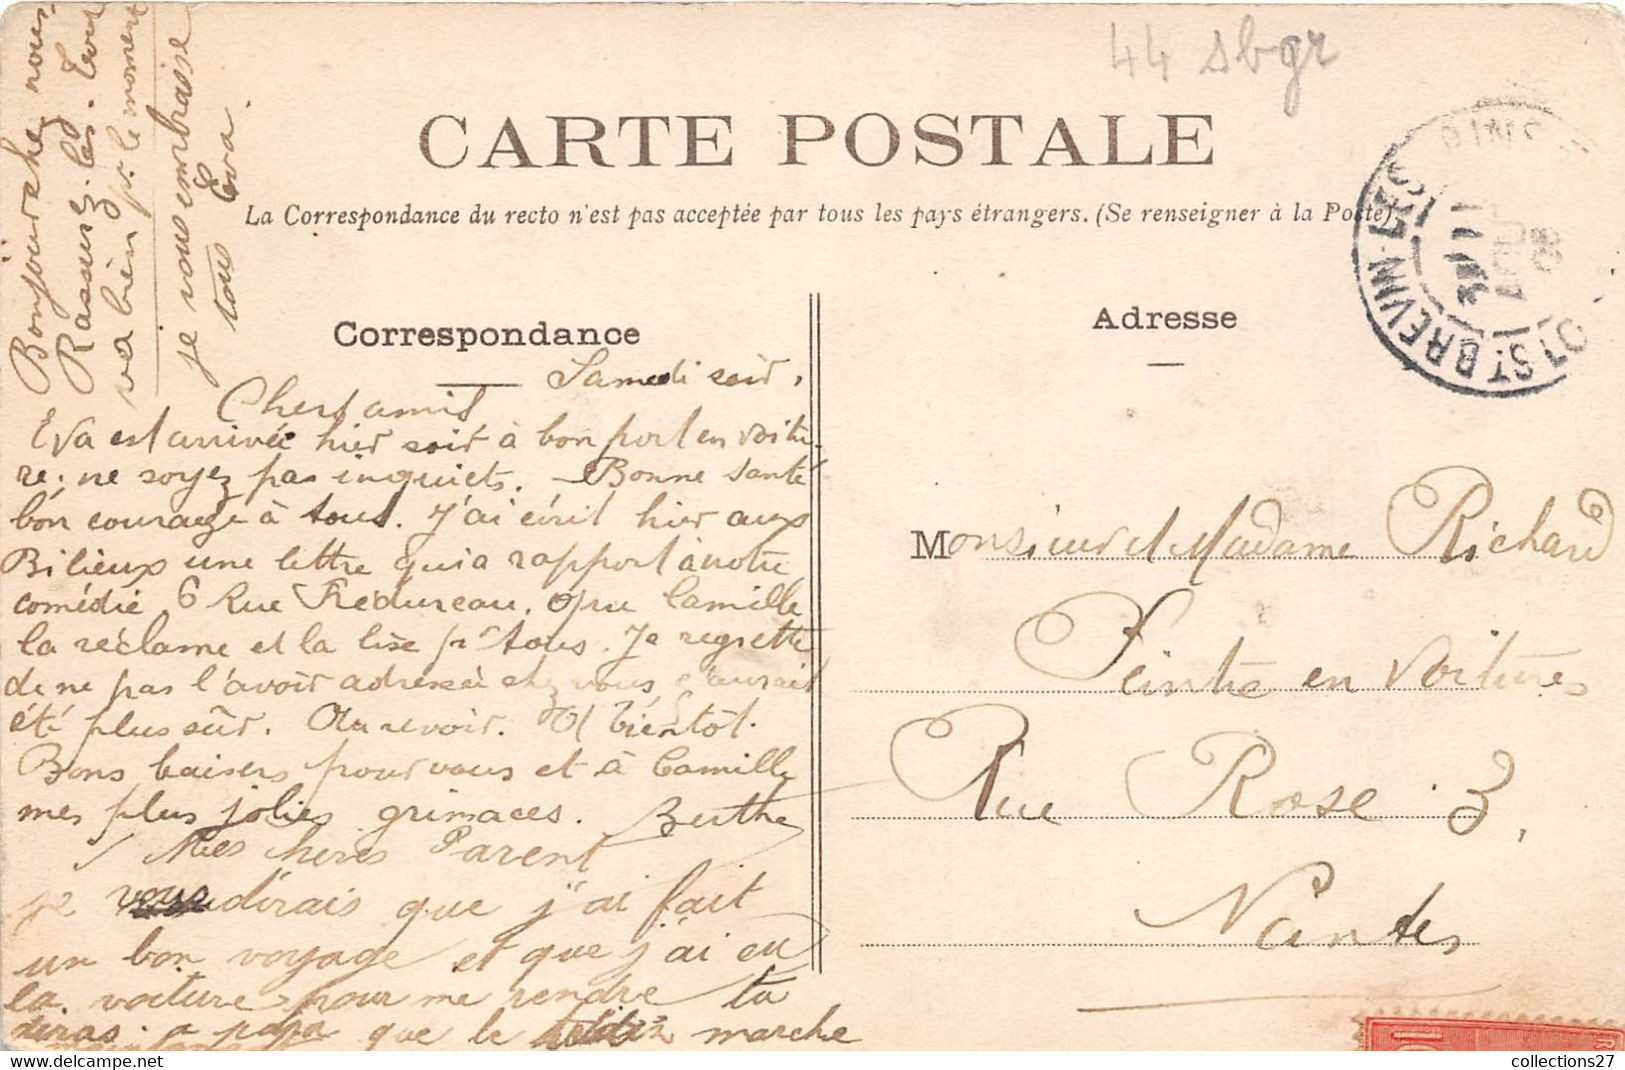 44 sbgr
CARTE POSTALE
La Correspondance du recto n'est pas acceptée par tous les pays étrangers. (Se renseigner à la Poste).
Correspondance
Samedi soir.
Chers amis
Eva est arrivée hier soir à bon port en voitu-
re; ne soyez pas inquiets. Bonne santé
bon courage à tous. J'ai écrit hier aux
Bilieux une lettre qui a rapport à notre
comédie, 6 Rue Frédureau, que Camille
la réclame et la lise pr tous. Je regrette
de ne pas l'avoir adressée chez vous, c'aurait
été plus sûr. Au revoir. A bientôt.
Bons baisers pour vous et à Camille
mes plus jolies grimaces. Berthe
Mes chers Parent
je vous dirais que j'ai fait
un bon voyage et que j'ai eu
la voiture pour me rendre tu
diras a papa que le marche
nous
Rassurez-les. Tout
va bien pr le moment
je vous embrasse
tous Eva.
Adresse
Monsieur et Madame Richard
Peintre en Voitures
Rue Rose 3,
Nantes
ST BREVIN LES
PINS
11
collections27